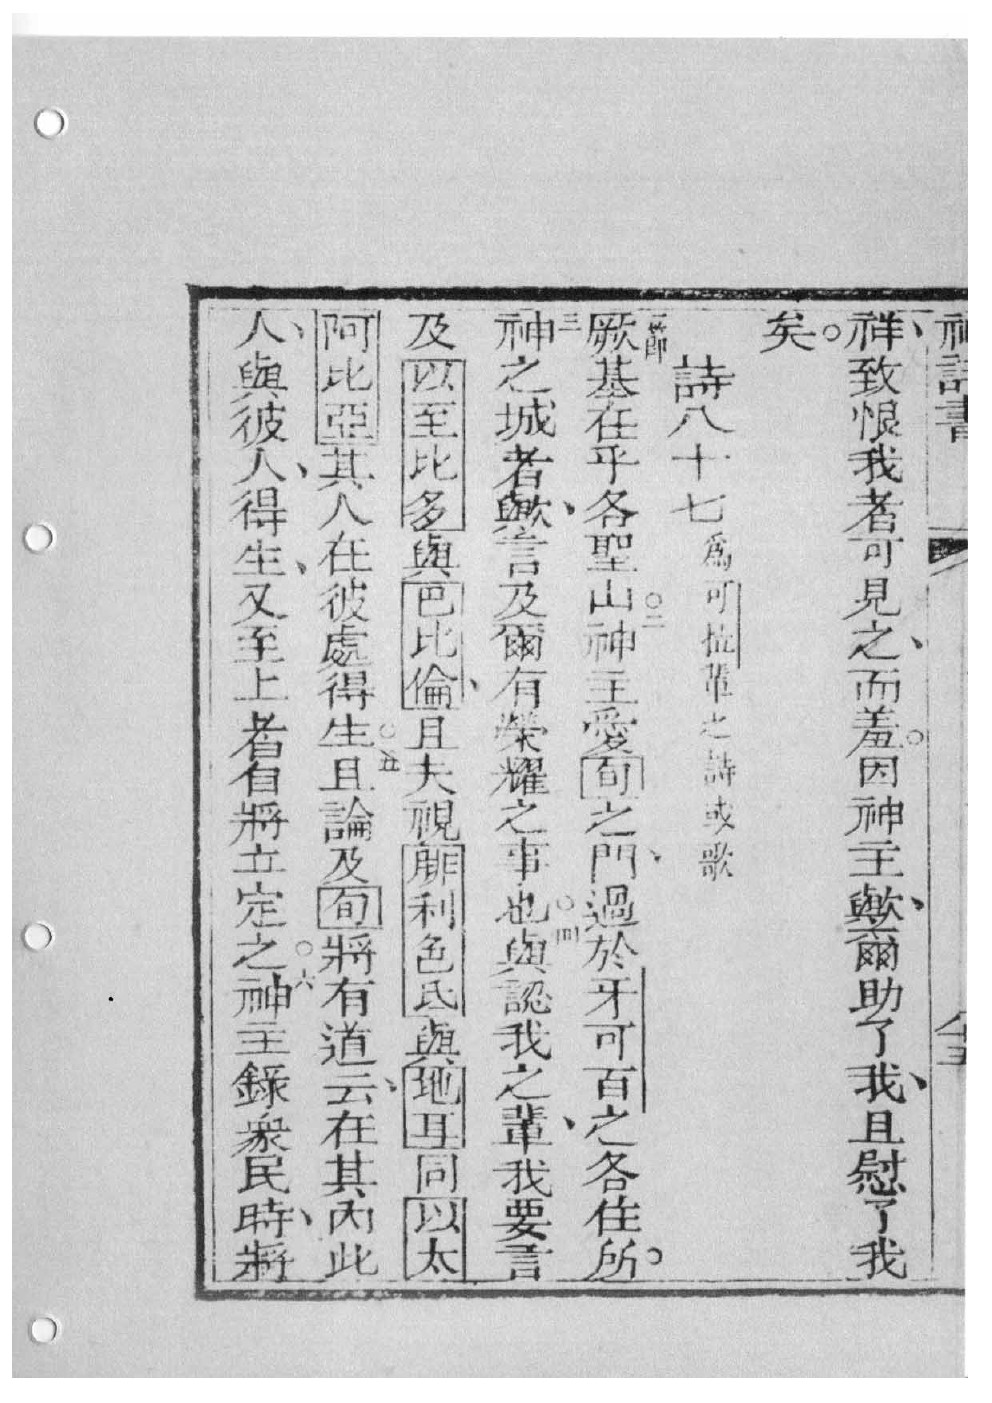 神詩書
祥、致恨我者可見之、而羞。因神主歟、爾助了我、且慰了我
矣。
詩八十七 爲可拉輩之詩或歌
一節厥基在乎各聖山。二神主愛旬之門、過於牙可百之各住所。
三神之城者歟、言及爾有榮耀之事也。四與認我之輩、我要言
及以至比多與巴比倫、且夫視腓利色氐與地耳同以太
阿比亞其人在彼處得生。五且論及旬將有道云、在其內此
人、與彼人、得生、又至上者自將立定之。六神主錄衆民時、將